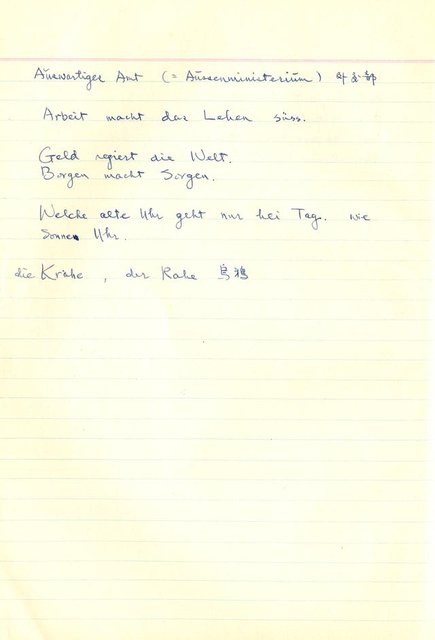 Auswärtiger Amt (= Aussenministerium) 外交部
Arbeit macht das Leben süss.
Geld regiert die Welt.
Borgen macht Sorgen.
Welche alte Uhr geht nur bei Tag. wie
Sonnen Uhr.
die Krähe , der Rabe 烏鴉